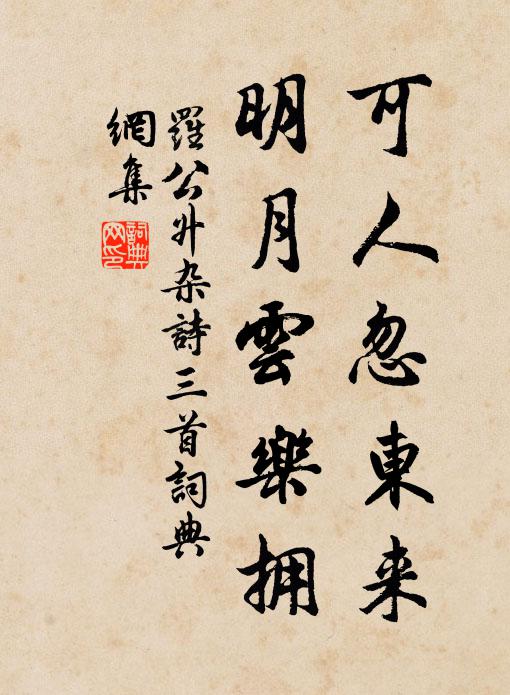 可人忽東来
明月雲樂拥
羅公升杂詩三首詞典
網集
詞典
网印